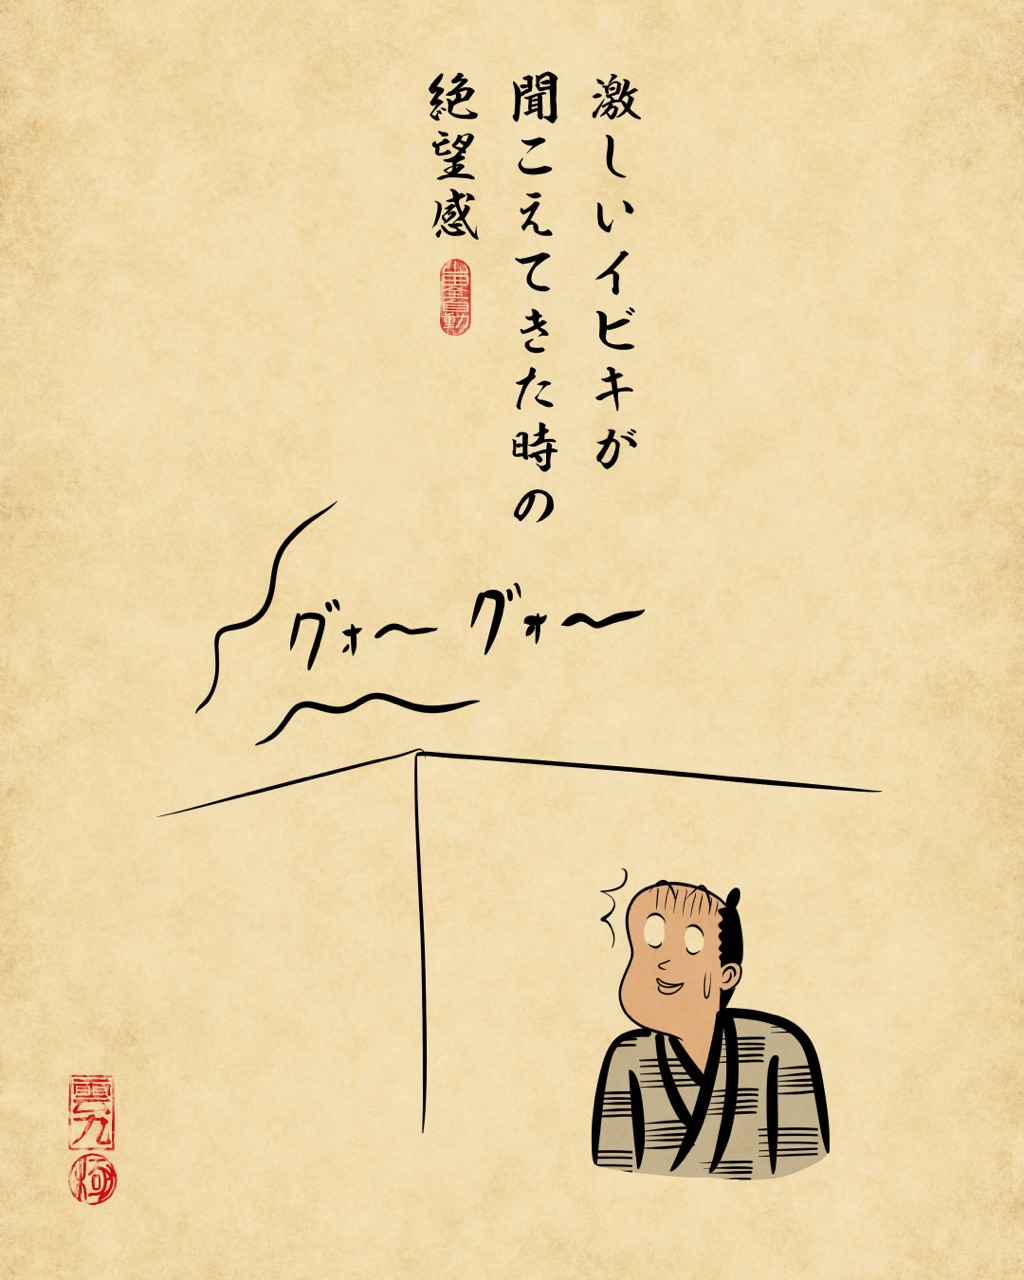 激しいイビキが
聞こえてきた時の
絶望感
グォ〜 グォ〜